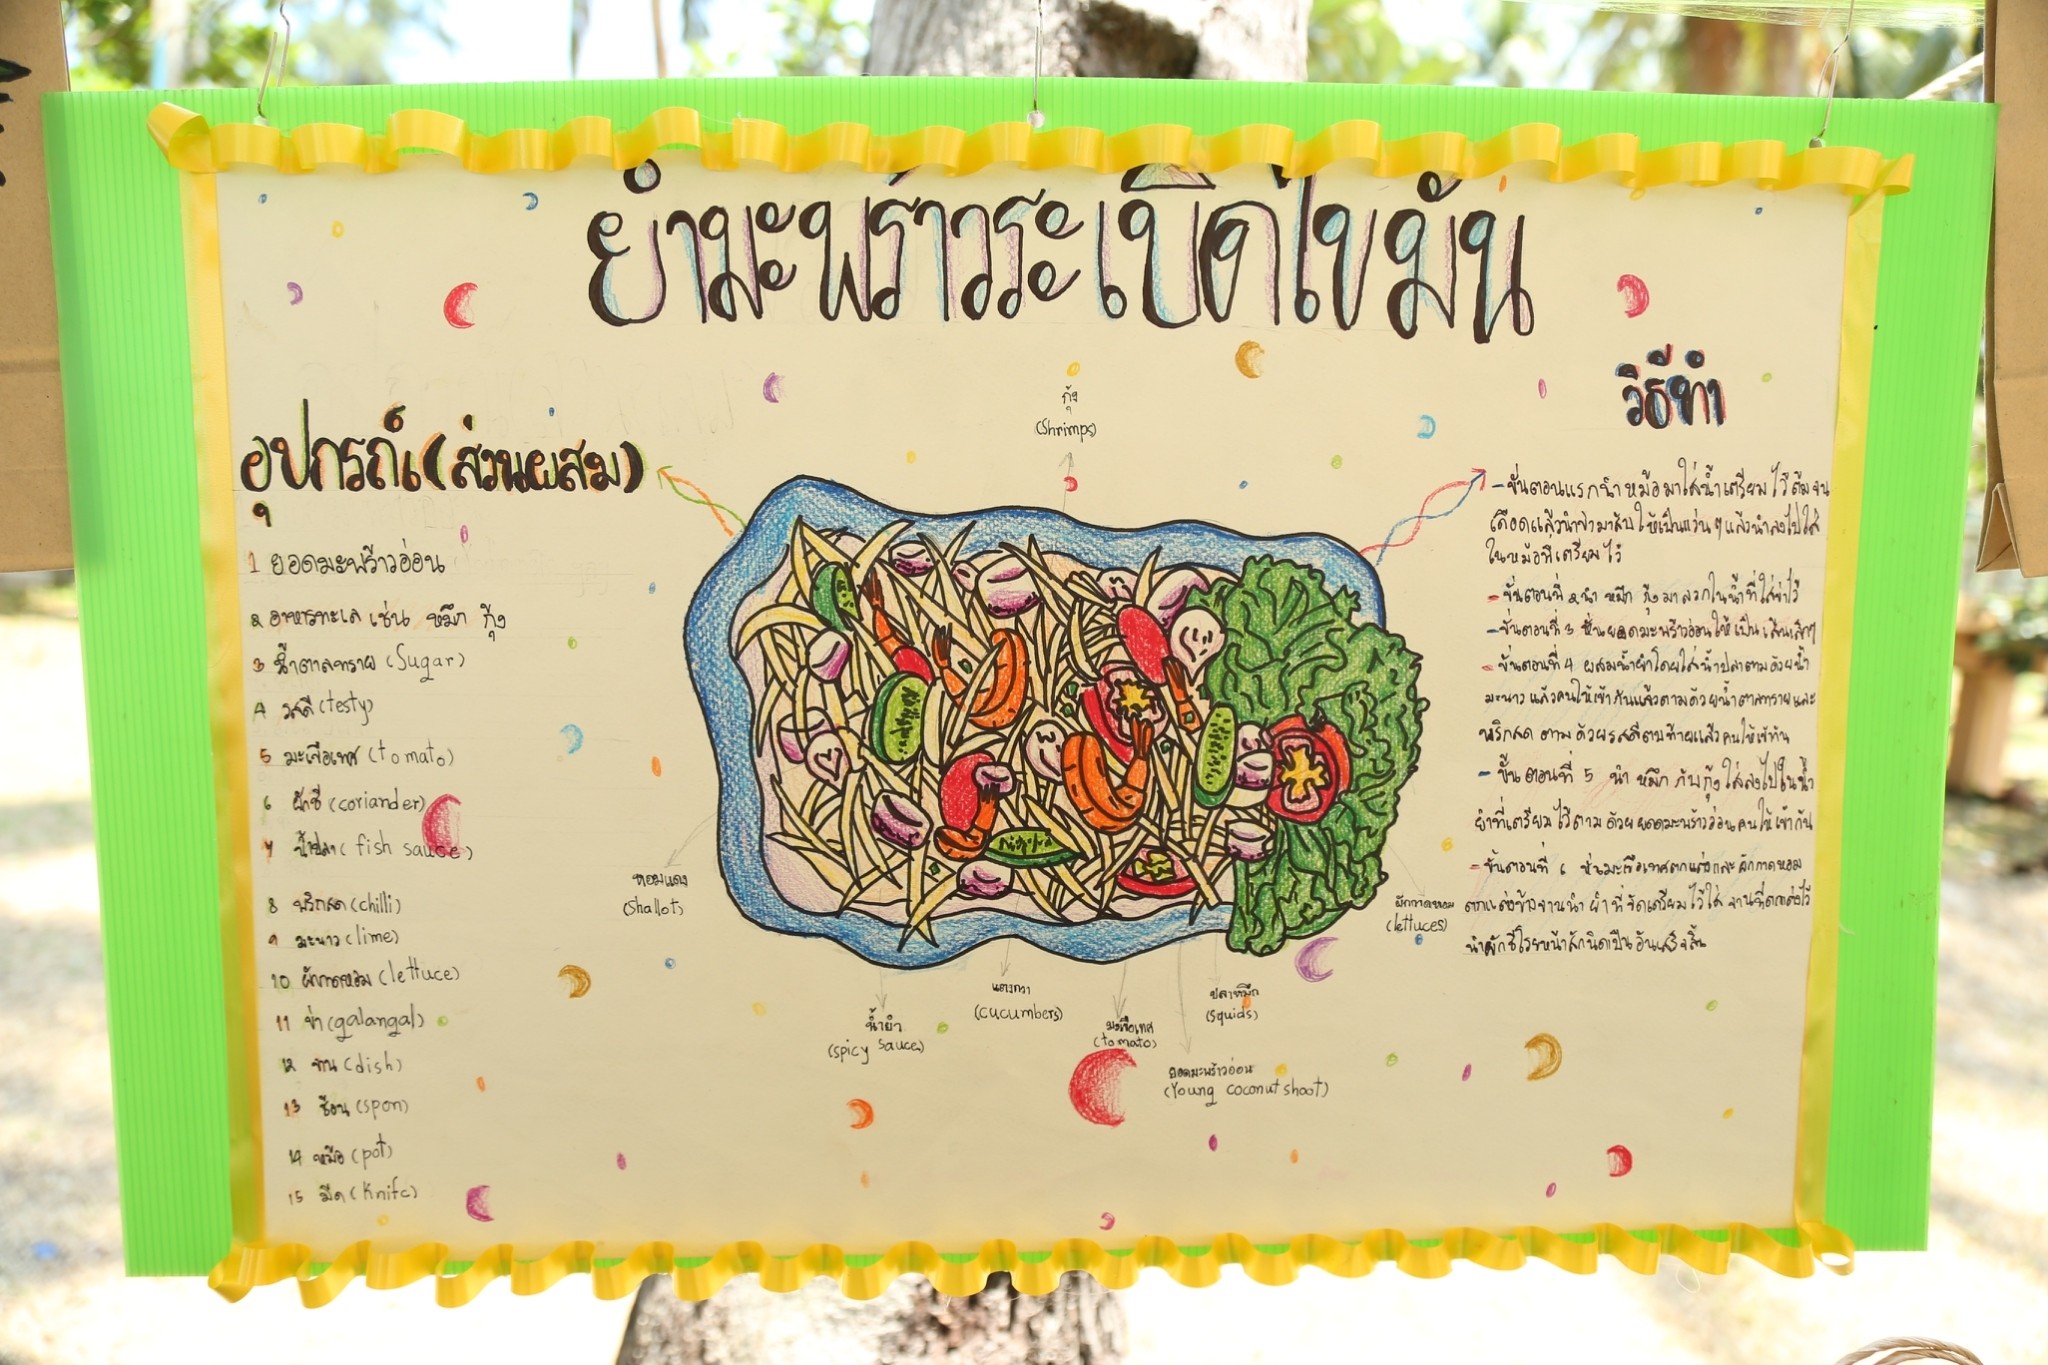 ยำมะพร้าวระเบิดไขมัน
อุปกรณ์(ส่วนผสม)
1 ยอดมะพร้าวอ่อน
2 อาหารทะเล เช่น หมึก กุ้ง
3 น้ำตาลทราย (Sugar)
4 รสดี (testy)
5 มะเขือเทศ (tomato)
6 ผักชี (coriander)
7 น้ำปลา ( fish sauce)
8 พริกสด (chilli)
9 มะนาว (lime)
10 ผักกาดหอม (lettuce)
11 ข่า (galangal)
12 จาน (dish)
13 ช้อน (spon)
14 หม้อ (pot)
15 มีด (Knife)
กุ้ง
(Shrimps)
หอมแดง
(Shallot)
น้ำยำ
(spicy sauce)
แตงกวา
(cucumbers)
มะเขือเทศ
(tomato)
ปลาหมึก
(squids)
ยอดมะพร้าวอ่อน
(Young coconut shoot)
ผักกาดหอม
(lettuces)
วิธีทำ
- ขั่นตอนแรกนำหม้อมาใส่น้ำเตรียมไว้ต้มจน
เดือดแล้วนำข่ามาสับให้เป็นแว่นๆแล้วนำลงไปใส่
ในหม้อที่เตรียมไว้
- ขั่นตอนที่ 2 นำ หมึก กุ้งมาลวกในน้ำที่ใส่ข่าไว้
- ขั่นตอนที่ 3 หั่นยอดมะพร้าวอ่อนให้เป็นเส้นเล็กๆ
- ขั่นตอนที่ 4 ผสมน้ำยำโดยใส่น้ำปลาตามด้วยน้ำ
มะนาวแล้วคนให้เข้ากันแล้วตามด้วยน้ำตาลทรายและ
พริกสด ตามด้วยรสดีตบท้ายแล้วคนให้เข้ากัน
- ขั้นตอนที่ 5 นำ หมึก กับกุ้งใส่ลงไปในน้ำ
ยำที่เตรียมไว้ตามด้วยยอดมะพร้าวอ่อนคนให้เข้ากัน
- ขั้นตอนที่ 6 หั่นมะเขือเทศตกแต่งและผักกาดหอม
ตกแต่งข้างจานนำยำที่จัดเตรียมไว้ใส่จานที่ตกแต่งไว้
นำผักชีโรยหน้าสักนิดเป็นอันเสร็จสิ้น